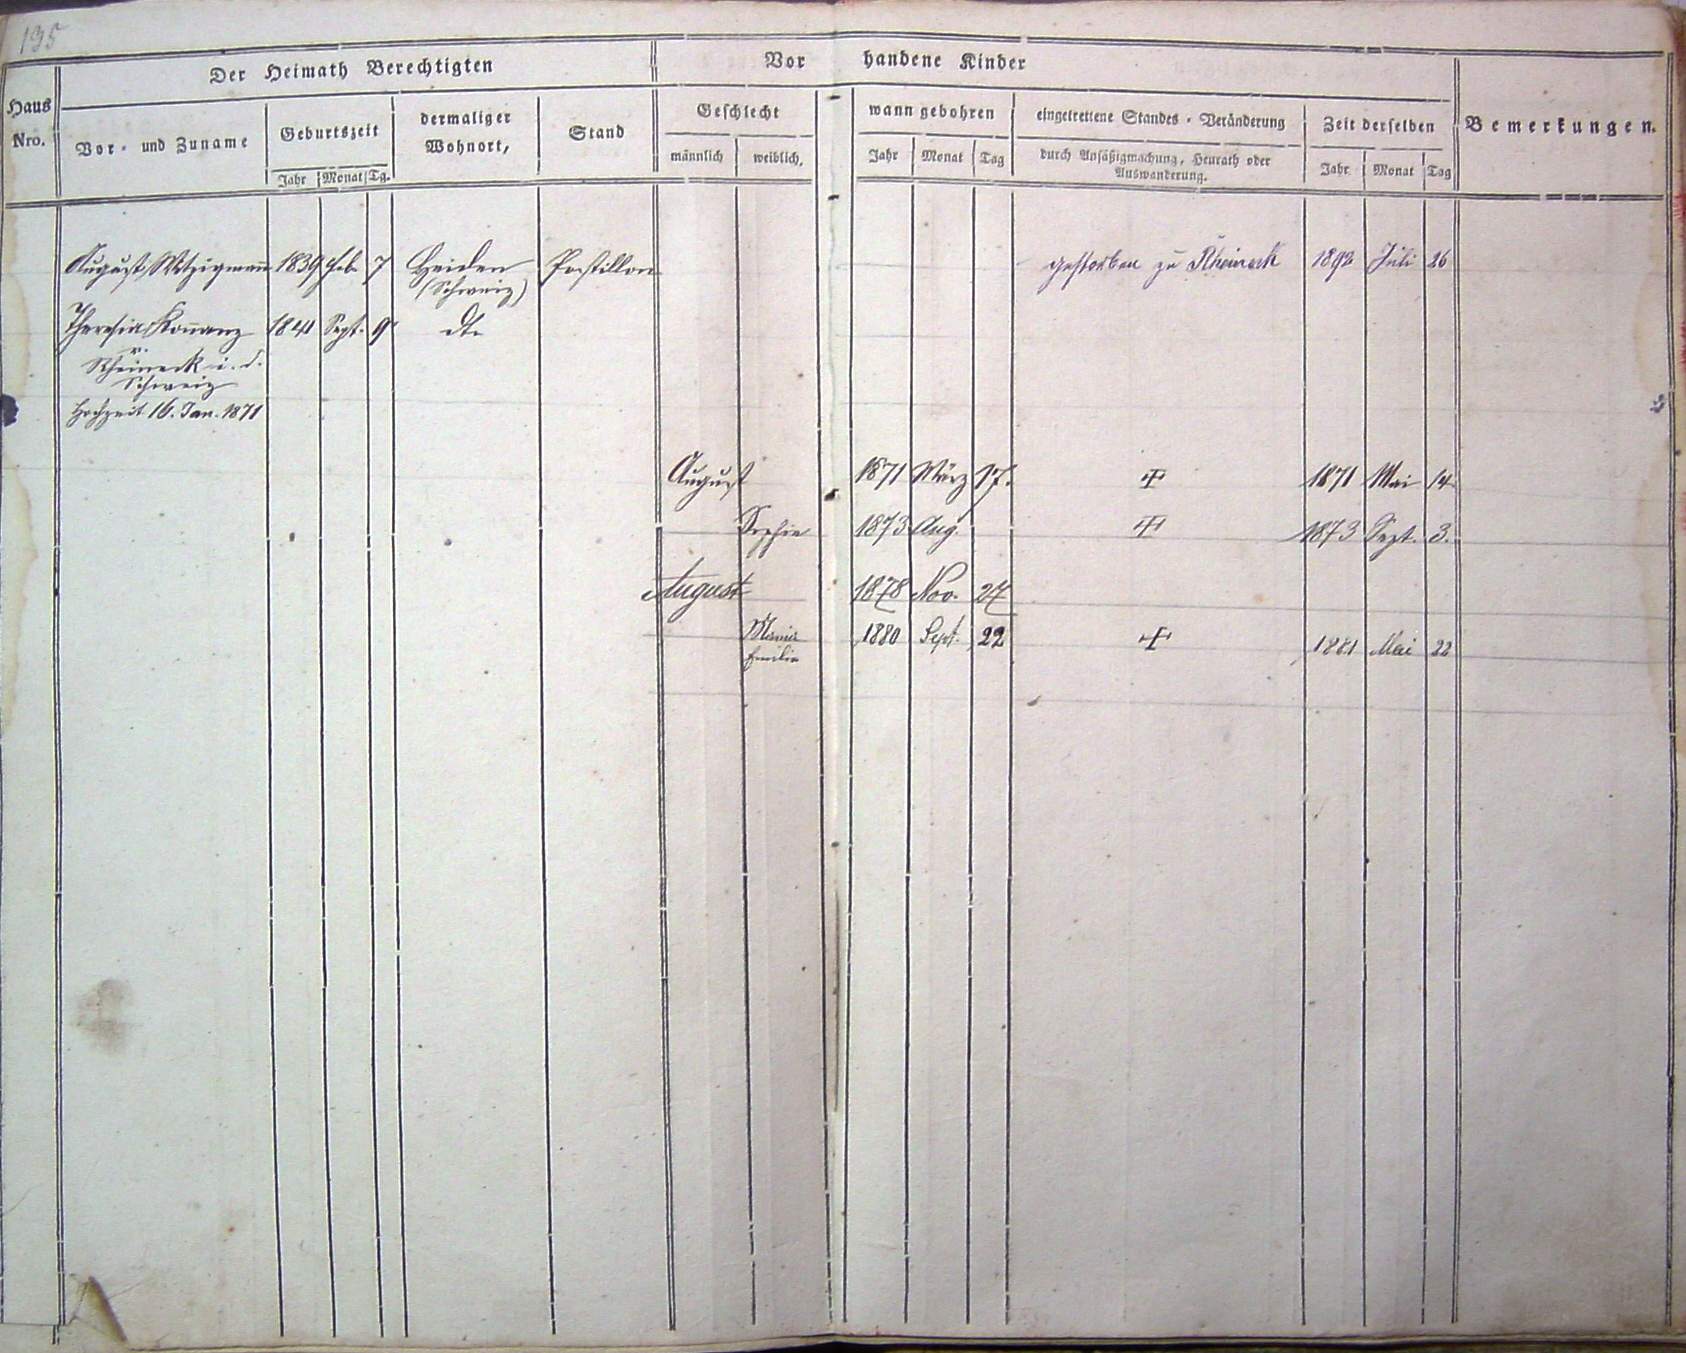 195
Der Heimath Berechtigten
Vor handene Kinder
Haus Nro.
Vor- und Zuname
Geburtszeit
dermaliger Wohnort,
Stand
Geschlecht
wann gebohren
eingetrettene Standes-Veränderung
Zeit derselben
Bemerkungen.
Jahr Monat Tg.
männlich weiblich,
Jahr Monat Tag
durch Ansäßigmachung, Heurath oder Auswanderung.
Jahr Monat Tag
August Witzigmann 1839 Feb. 7 Heiden Postillon gestorben zu Rheineck 1892 Juli 26
(Schweiz)
Theresia 1841 Sept. 9 dto
v.
Rheineck i. d.
Schweiz
Hochzeit 16. Jan. 1871
August 1871 März 17. 1871 Mai 14
Sophie 1873 Aug. 1873 Sept. 3.
August 1878 Nov. 27
Maria 1880 Sept. 22 1881 Mai 22
Emilie